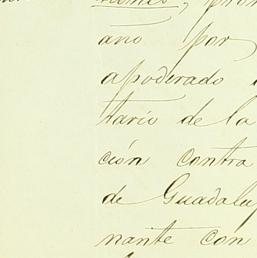 año por
apoderado
tario de la
ción contra
de Guadalu
nante con